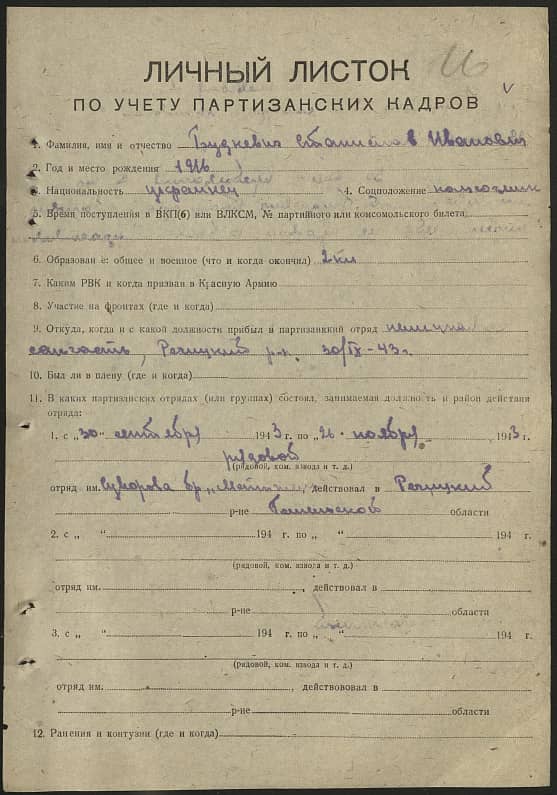 16
ЛИЧНЫЙ ЛИСТОК
ПО УЧЕТУ ПАРТИЗАНСКИХ КАДРОВ
1. Фамилия, имя и отчество Будкевич Станислав Иванович
2. Год и место рождения 1916
3. Национальность украинец 4. Соцположение колхозник
5. Время поступления в ВКП(б) или ВЛКСМ, № партийного или комсомольского билета
6. Образование: общее и военное (что и когда окончил) 2 кл
7. Каким РВК и когда призван в Красную Армию
8. Участие на фронтах (где и когда)
9. Откуда, когда и с какой должности прибыл в партизанский отряд
Речицкий р-н. 30/IX-43 г.
10. Был ли в плену (где и когда)
11. В каких партизанских отрядах (или группах) состоял, занимаемая должность и район действия
отряда:
1. с „30" сентября 1943 г. по „26" ноября 1943 г.
рядовой
(рядовой, ком. взвода и т. д.)
отряд им. Суворова бр. действовал в Речицкий
р-не Гомельской области
2. с „ " 194 г. по „ " 194 г.
(рядовой, ком. взвода и т. д.)
отряд им. действовал в
р-не области
3. с „ " 194 г. по „ " 194 г.
(рядовой, ком. взвода и т. д.)
отряд им. действововал в
р-не области
12. Ранения и контузии (где и когда)